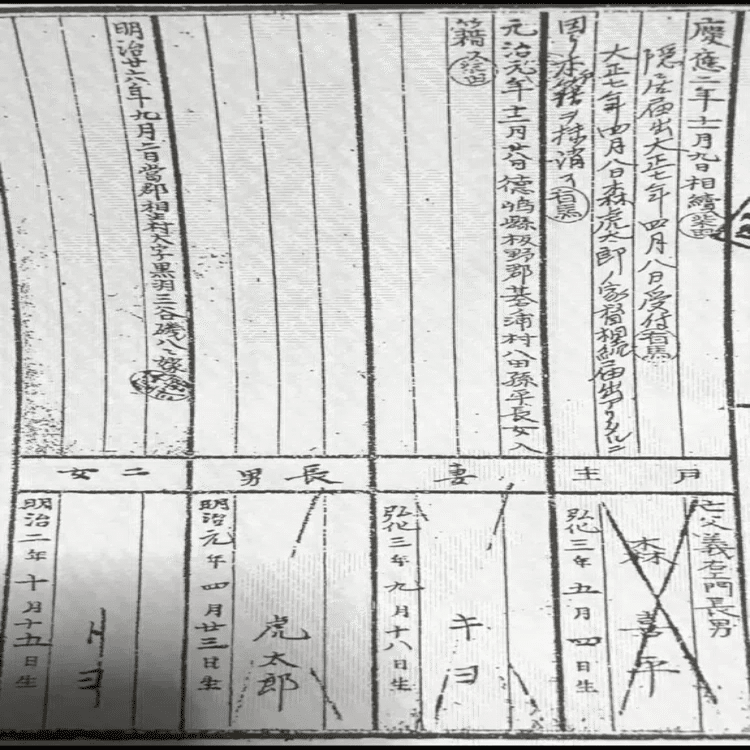 慶應二年十一月九日相續
隠居届出大正七年四月八日受付有馬
大正七年四月八日森虎太郎ノ家督相続届出アリタルニ
因リ本籍ヲ抹消ス有馬
戸主
亡父義右エ門長男
森喜平
弘化三年五月四日生
元治元年十二月廿八日德島縣板野郡基浦村八田孫平長女入
籍ス
妻
キヨ
弘化三年九月十八日生
長男
虎太郎
明治元年四月廿三日生
明治廿六年九月二日當郡相生村大字黒羽三谷磯八ヘ嫁
二女
トヨ
明治二年十月十五日生